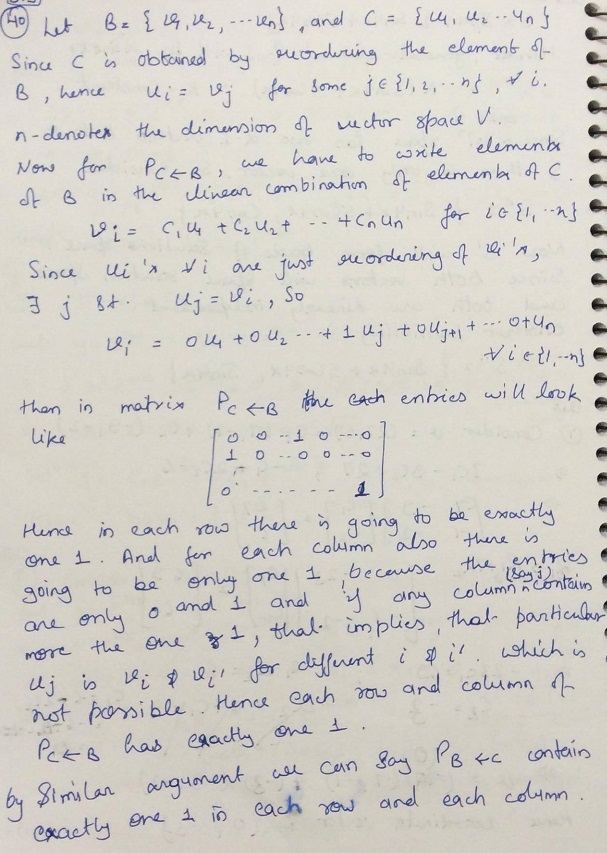 40 Let B = { v1, v2, ... vn} , and C = { u1, u2 .. un }
Since C is obtained by reordering the element of
B , hence ui = vj for some j ∈ {1, 2, .. n} , ∀ i.
n-denotes the dimension of vector space V.
Now for PC←B , we have to write elements
of B in the linear combination of elements of C.
vi = C1 u1 + C2 u2 + .. + Cn un for i ∈ {1, .. n}
Since ui's ∀ i are just reordering of vi's,
∃ j st. uj = vi , So
vi = 0 u1 + 0 u2 ... + 1 uj + 0 uj+1 + ... 0 + un
∀ i ∈ {1, .. n}
then in matrix PC←B the each entries will look
like [ 0 0 .. 1 0 ... 0
1 0 .. 0 0 .. 0
0 - - - - - - 1 ]
Hence in each row there is going to be exactly
one 1. And for each column also there is
going to be only one 1, because the entries
are only 0 and 1 and if any column (say j) contain
more the one 1, that implies, that particular
uj is vi & vi' for different i & i'. which is
not possible. Hence each row and column of
PC←B has exactly one 1.
by Similar argument we can say PB←C contain
exactly one 1 in each row and each column.